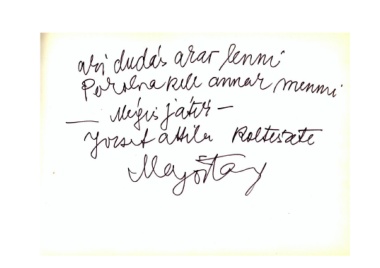 aki dudás akar lenni
Pokolra kell annak menni
— Mégis játék —
József Attila Költészete
Major Tamás